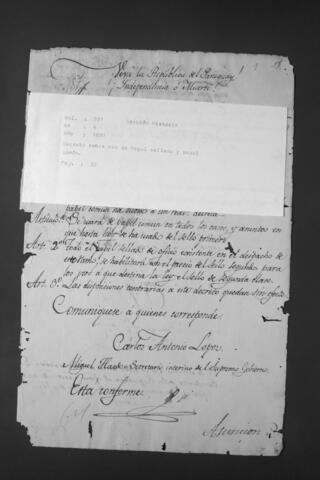 Viva la República del Paraguay!
Independencia ó Muerte!
Vol. : 297
Sección Historia
Nº : 6
Año : 18
Decreto sobre uso de Papel sellado y papel
común.
papel común
Artículo 1º Se usará de papel común en todos los casos, y asuntos en
que hasta hoy se ha usado del sello primero.
Art. 2º Todo el papel sellado de oficio existente en el despacho de
este ramo, se habilitará con el precio del sello segundo para
los usos á que destina la ley el sello de segunda clase.
Art. 3º Las disposiciones contrarias á este decreto quedan sin efecto.
Comuníquese a quienes corresponde.
Carlos Antonio Lopez
Miguel Secretario interino del Supremo Gobierno.
Esta conforme
Asuncion